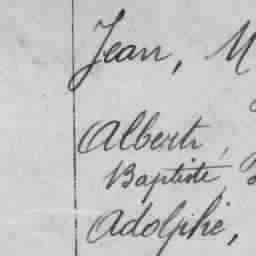 Jean, M
Albert,
Baptiste
Adolphe,